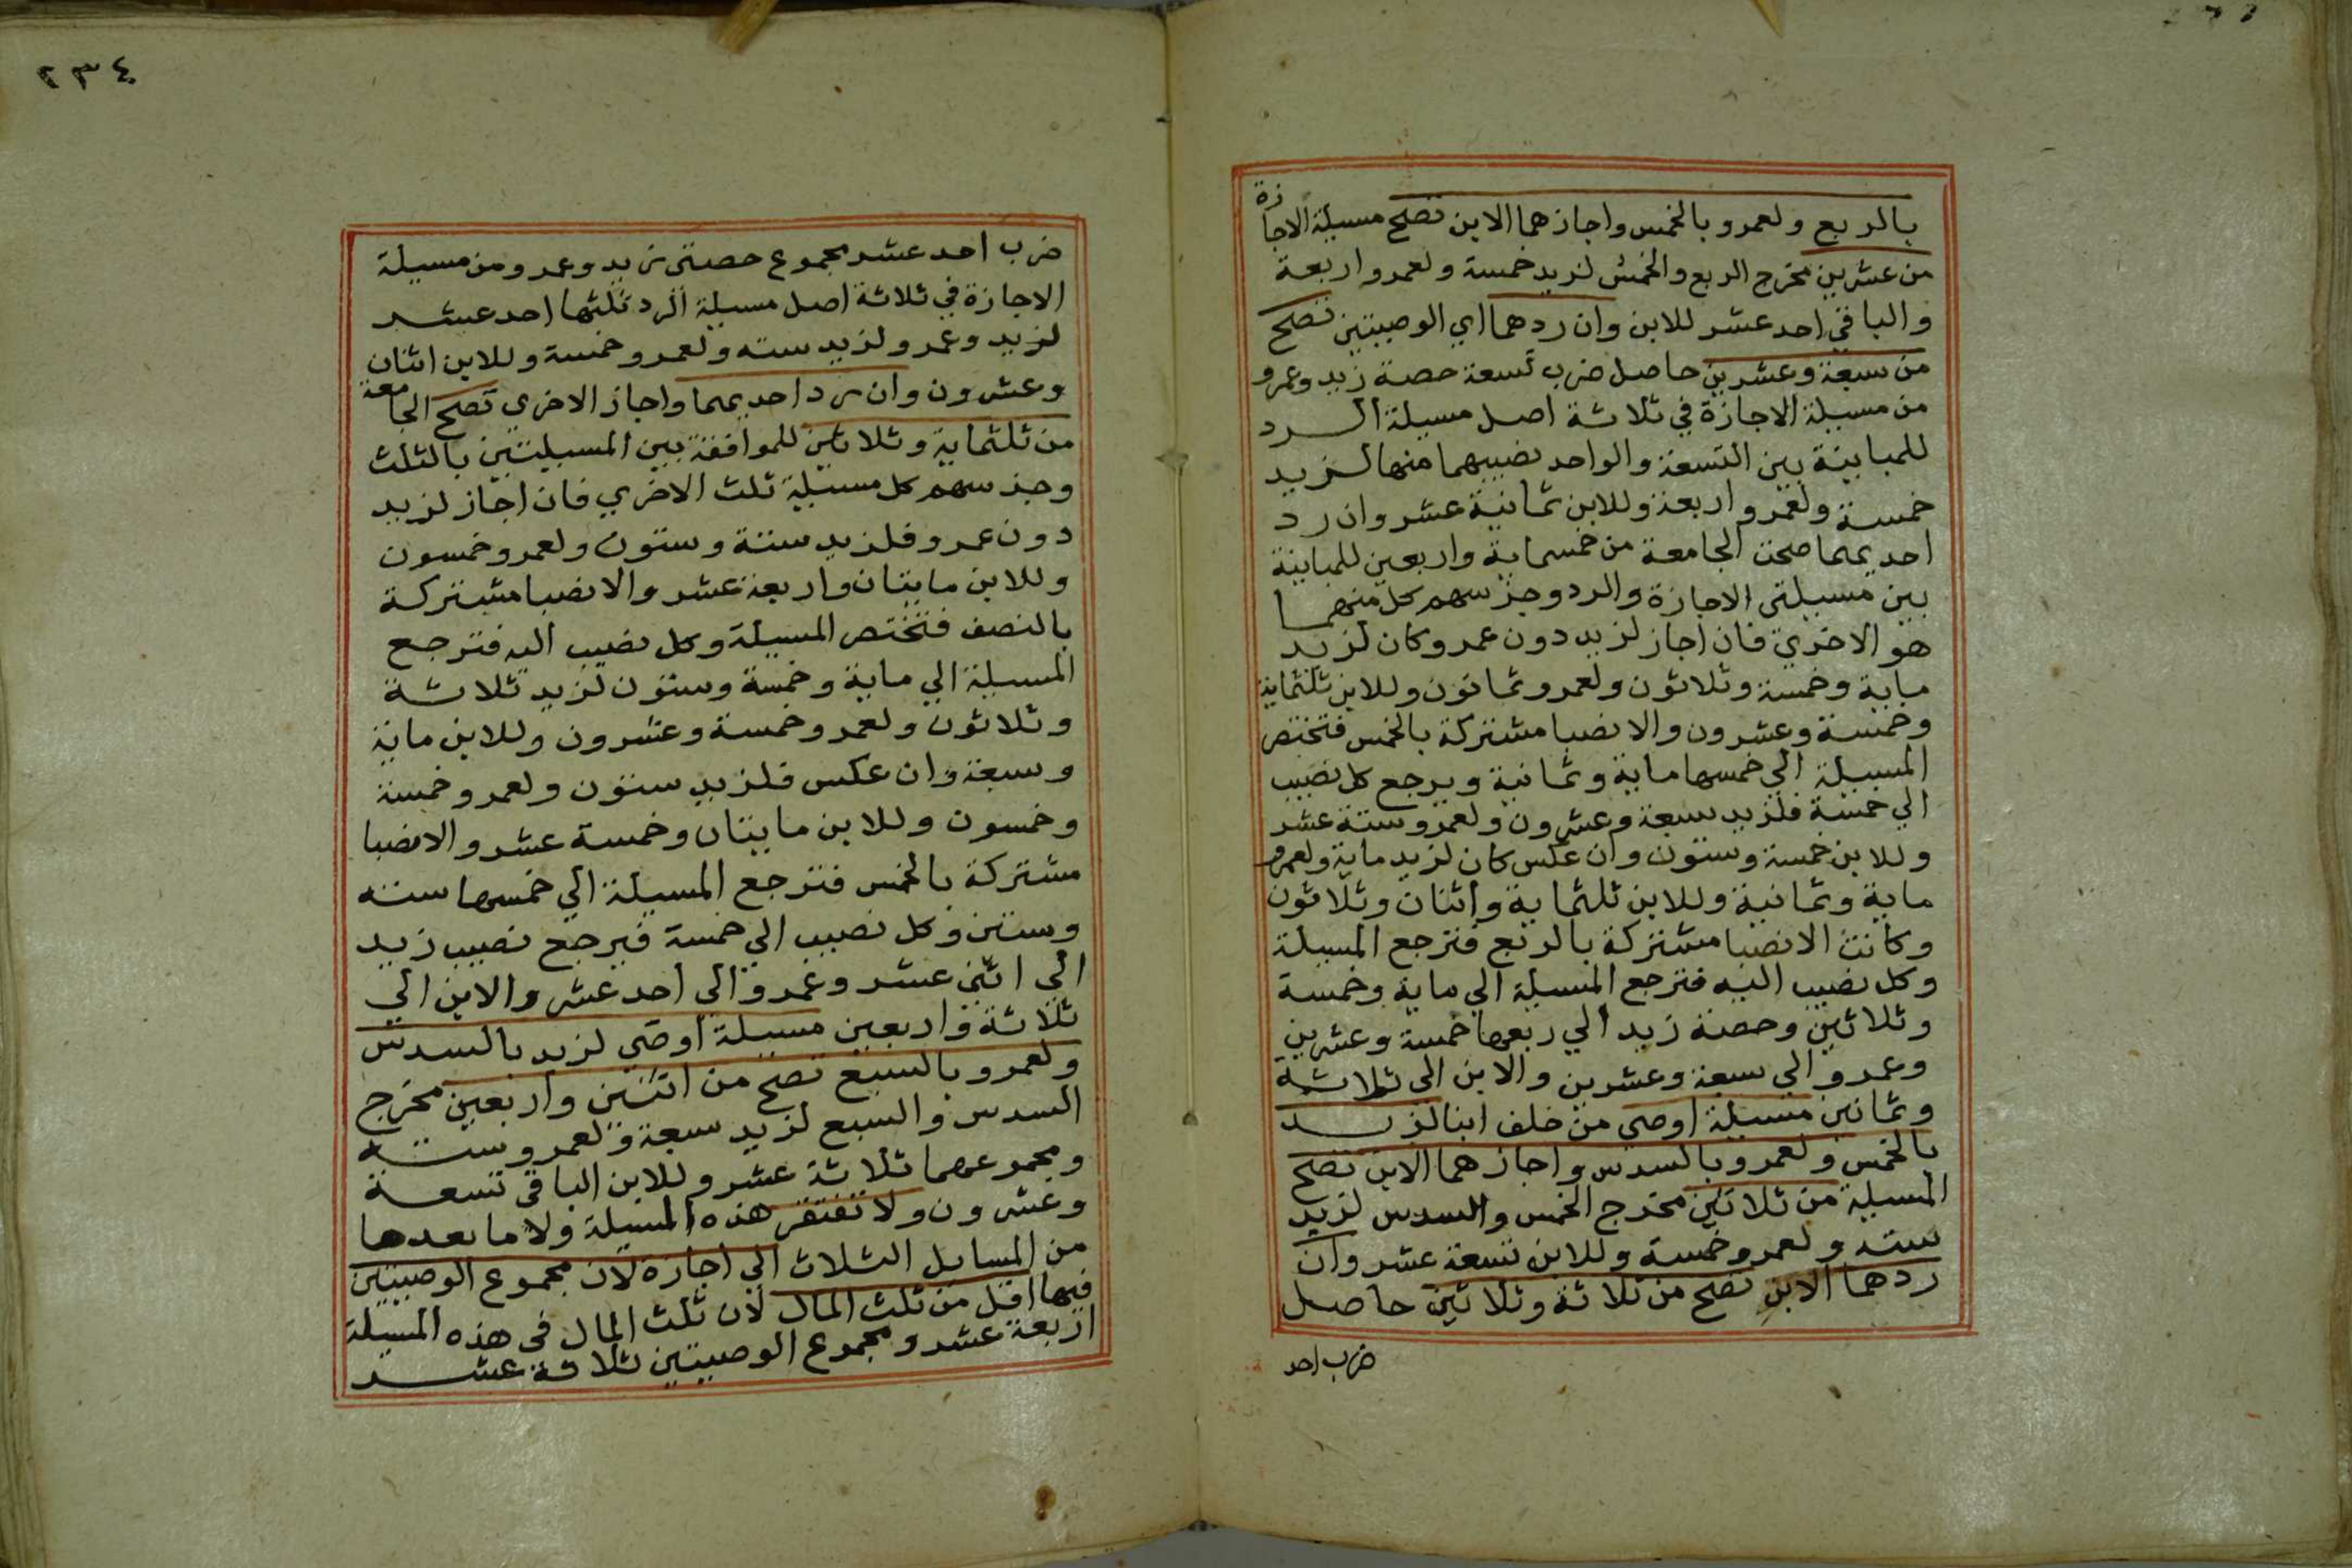 بالربع ولعمرو بالخمس واجازهما الابن تصح مسيلة الاجازة
من عشرين مخرج الربع والخمس لزيد خمسة ولعمرو اربعة
والباقي احد عشر للابن وان ردهما اي الوصيتين تصح
من سبعة وعشرين حاصل ضرب تسعة حصة زيد وعمرو
من مسيلة الاجازة في ثلاثة اصل مسيلة الرد
للمباينة بين التسعة والواحد نصيبهما منها لزيد
خمسة ولعمرو اربعة وللابن ثمانية عشر وان رد
احديهما صحت الجامعة من خمسماية واربعين للمباينة
بين مسيلتي الاجازة والرد وجز سهم كل منهما
هو الاخري فان اجاز لزيد دون عمرو كان لزيد
ماية وخمسة وثلاثون ولعمرو ثمانون وللابن ثلثماية
وخمسة وعشرون والانصبا مشتركة بالخمس فتختصر
المسيلة الي خمسها ماية وثمانية ويرجع كل نصيب
الي خمسة فلزيد سبعة وعشرون ولعمرو ستة عشر
وللابن خمسة وستون وان عكس كان لزيد ماية ولعمرو
ماية وثمانية وللابن ثلثماية واثنان وثلاثون
وكانت الانصبا مشتركة بالربع فترجع المسيلة
وكل نصيب اليه فترجع المسيلة الي ماية وخمسة
وثلاثين وحصة زيد الي ربعها خمسة وعشرين
وعمرو الي سبعة وعشرين والابن الي ثلاثة
وثمانين مسيلة اوصي من خلف ابنا لزيد
بالخمس ولعمرو بالسدس واجازهما الابن تصح
المسيلة من ثلاثين مخرج الخمس والسدس لزيد
سته ولعمرو خمسة وللابن تسعة عشر وان
ردهما الابن تصح من ثلاثة وثلاثين حاصل
ضرب احد
٢٣٤
ضرب احد عشر مجموع حصتي زيد وعمرو من مسيلة
الاجازة في ثلاثة اصل مسيلة الرد ثلثها احد عشر
لزيد وعمرو لزيد سته ولعمرو خمسة وللابن اثنان
وعشرون وان رد احديهما واجاز الاخري تصح الجامعة
من ثلثماية وثلاثين للموافقة بين المسيلتين بالثلث
وجز سهم كل مسيلة ثلث الاخري فان اجاز لزيد
دون عمرو فلزيد ستة وستون ولعمرو خمسون
وللابن مايتان واربعة عشر والانصبا مشتركة
بالنصف فتختصر المسيلة وكل نصيب اليه فترجع
المسيلة الي ماية وخمسة وستون لزيد ثلاثة
وثلاثون ولعمرو خمسة وعشرون وللابن ماية
وسبعة وان عكس فلزيد ستون ولعمرو خمسة
وخمسون وللابن مايتان وخمسة عشر والانصبا
مشتركة بالخمس فترجع المسيلة الي خمسها سته
وستين وكل نصيب الي خمسة فيرجع نصيب زيد
الي اثني عشر وعمرو الي احد عشر والابن الي
ثلاثة واربعين مسيلة اوصي لزيد بالسدس
ولعمرو بالسبع تصح من اثنين واربعين مخرج
السدس والسبع لزيد سبعة ولعمرو ستة
ومجموعهما ثلاثة عشر وللابن الباقي تسعة
وعشرون ولا تفتقر هذه المسيلة ولا ما بعدها
من المسايل الثلاث الي اجازة لان مجموع الوصيتين
فيها اقل من ثلث المال لان ثلث المال في هذه المسيلة
اربعة عشر ومجموع الوصيتين ثلاثة عشر